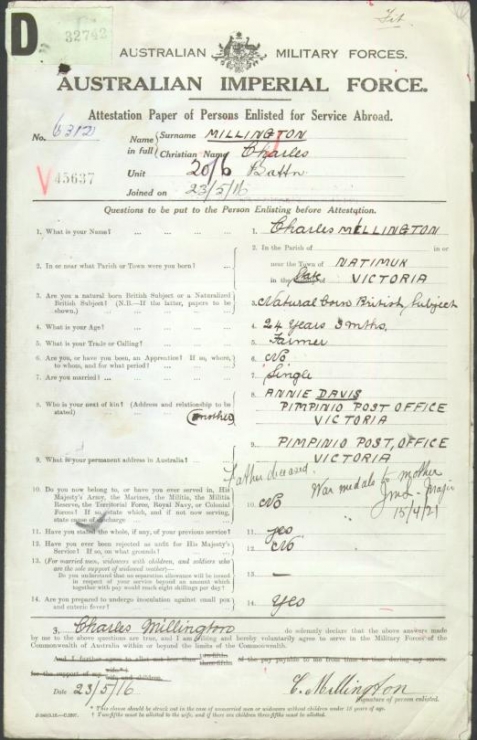 D
32742
AUSTRALIAN MILITARY FORCES.
AUSTRALIAN IMPERIAL FORCE.
Attestation Paper of Persons Enlisted for Service Abroad.
No. 6312
Name in full { Surname MILLINGTON
Christian Name Charles
V 45637
Unit 20/6 Battn
Joined on 23/5/16
Questions to be put to the Person Enlisting before Attestation.
1. What is your Name? ... ... ... 1. Charles MILLINGTON
2. In or near what Parish or Town were you born? ... 2. In the Parish of in or
near the Town of NATIMUK
in the State of VICTORIA
3. Are you a natural born British Subject or a Naturalized British Subject? (N.B.—If the latter, papers to be shown.) 3. Natural born British Subject
4. What is your Age? ... 4. 24 Years 3 mths.
5. What is your Trade or Calling? ... 5. Farmer
6. Are you, or have you been, an Apprentice? If so, where, to whom, and for what period? 6. No
7. Are you married? ... 7. Single
8. Who is your next of kin? (Address and relationship to be stated) (mother) 8. ANNIE DAVIS
PIMPINIO POST OFFICE
VICTORIA
9. What is your permanent address in Australia? ... 9. PIMPINIO POST, OFFICE
VICTORIA
Father deceased.
War medals to mother
15/4/21
10. Do you now belong to, or have you ever served in, His Majesty's Army, the Marines, the Militia, the Militia Reserve, the Territorial Force, Royal Navy, or Colonial Forces? If so, state which, and if not now serving, state cause of discharge 10. No
11. Have you stated the whole, if any, of your previous service? 11. yes
12. Have you ever been rejected as unfit for His Majesty's Service? If so, on what grounds? 12. No
13. (For married men, widowers with children, and soldiers who are the sole support of widowed mother— 13. —
Do you understand that no separation allowance will be issued in respect of your service beyond an amount which together with pay would reach eight shillings per day?
14. Are you prepared to undergo inoculation against small pox and enteric fever? 14. Yes
Charles Millington do solemnly declare that the above answers made
by me to the above questions are true, and I am willing and hereby voluntarily agree to serve in the Military Forces of the
Commonwealth of Australia within or beyond the limits of the Commonwealth.
And I further agree to allot not less than two-fifths three-fifths of the pay payable to me from time to time during my service
for the support of my wife wife and children.
Date 23/5/16 C. Millington
Signature of person enlisted.
* This clause should be struck out in the case of unmarried men or widowers without children under 18 years of age.
† Two-fifths must be allotted to the wife, and if there are children three-fifths must be allotted.